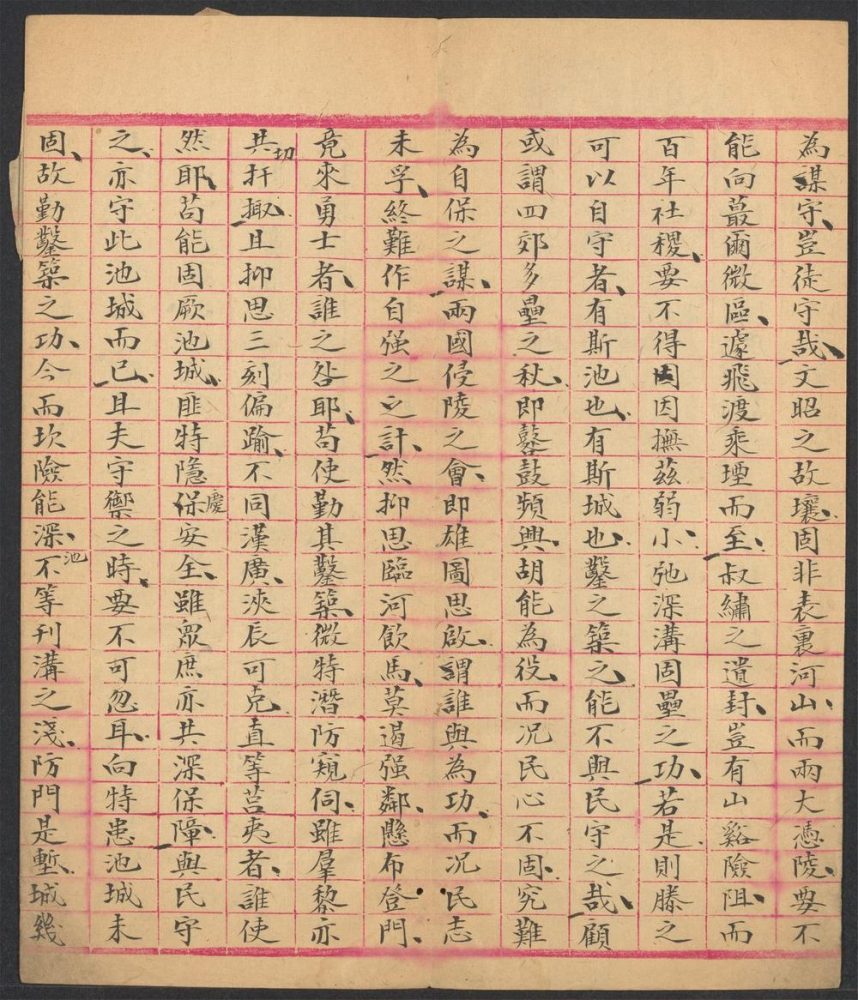 為謀守、豈徒守哉、文昭之故壤、固非表裏河山、而兩大憑陵、要不
能向蕞爾微區、遽飛渡乘堙而至、叔繡之遺封、豈有山谿險阻、而
百年社稷、要不得因因撫茲弱小、弛深溝固壘之功、若是則滕之
可以自守者、有斯池也、有斯城也、鑿之築之、能不與民守之哉、顧
或謂四郊多壘之秋、即鼛鼓頻興、胡能為役、而况民心不固、究難
為自保之謀、兩國侵陵之會、即雄圖思啟、謂誰與為功、而况民志
未孚、終難作自强之之計、然抑思臨河飲馬、莫遏强鄰、懸布登門、
竟來勇士者、誰之咎耶、苟使勤其鑿築、微特潛防窺伺、雖羣黎亦
共切扞掫、且抑思三刻偏踰、不同漢廣、浹辰可克、直等莒夷者、誰使
然耶、苟能固厥池城、匪特隱保慶安全、雖眾庶亦共深保障、與民守
之、亦守此池城而已、且夫守禦之時、要不可忽耳、向特患池城未
固、故勤鑿築之功、今而坎險能深、不池等刋溝之淺、防門是塹、城幾